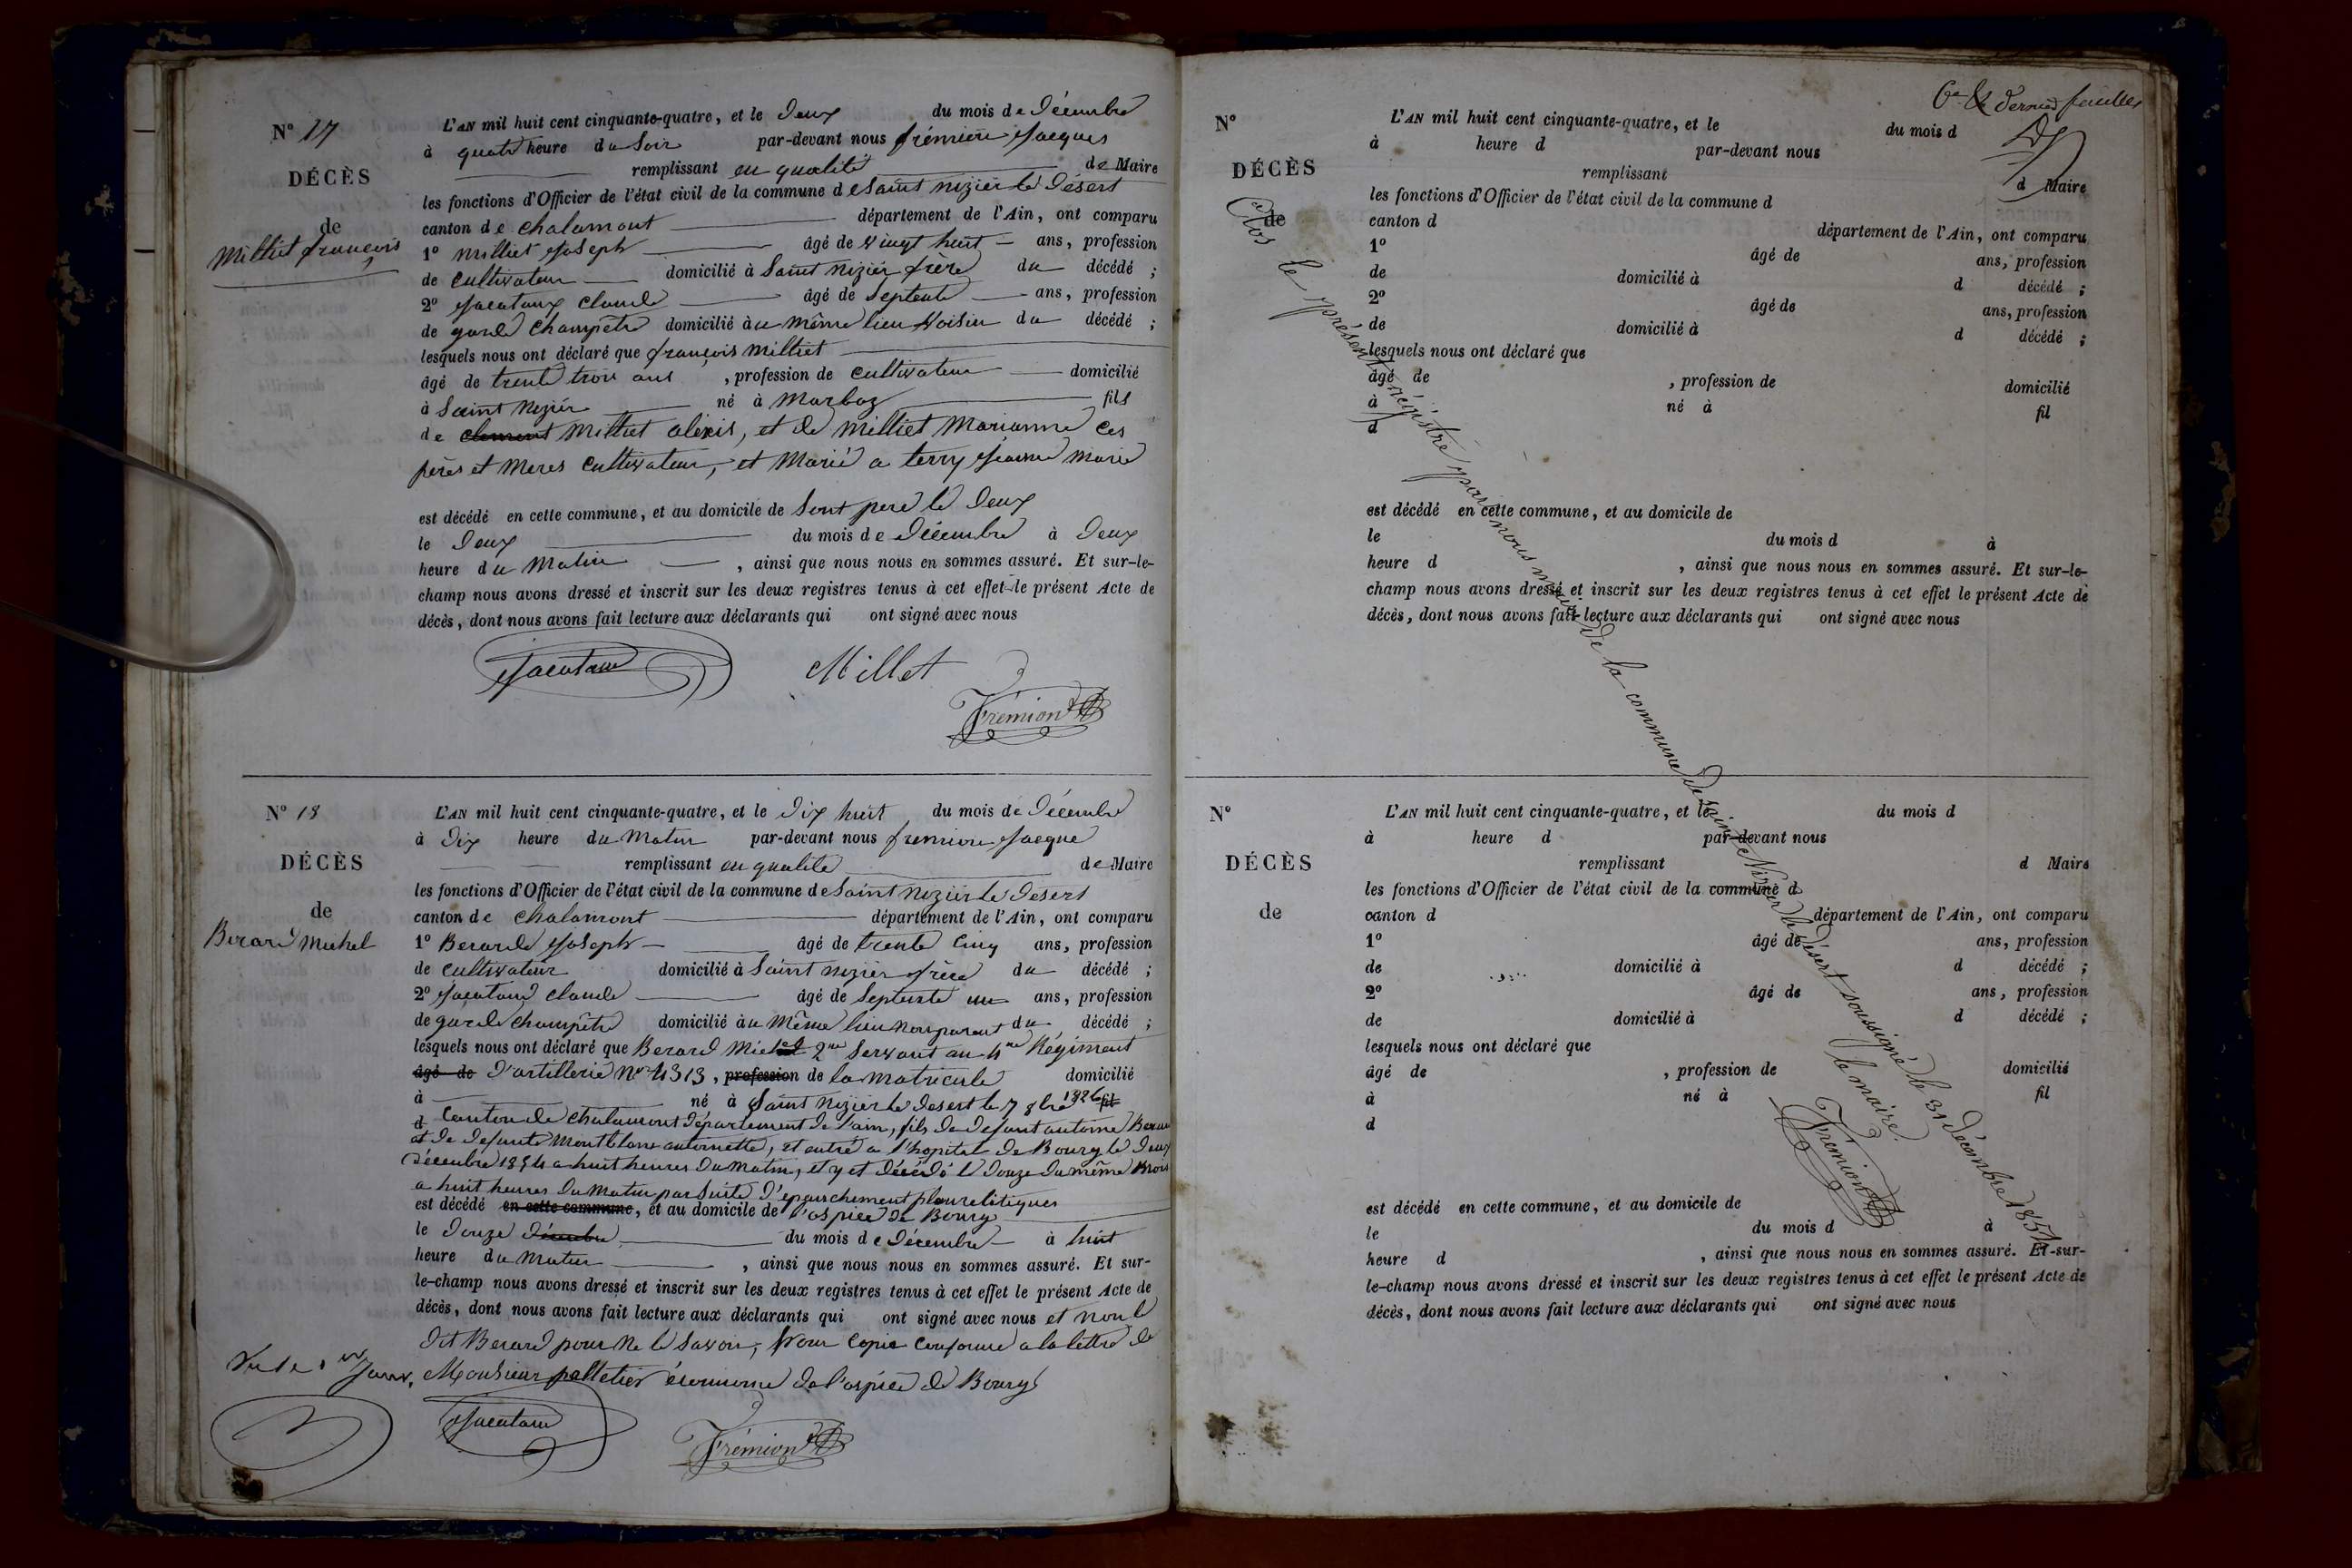 N° 17
DÉCÈS
de
Milliet françois
L'AN mil huit cent cinquante-quatre, et le Deux du mois de Décembre
à quatre heure du Soir par-devant nous frémion Jacques
remplissant en qualité de Maire
les fonctions d'Officier de l'état civil de la commune de Saint nizier le Désert
canton de chalamont département de l'Ain, ont comparu
1° Milliet Joseph âgé de vingt huit ans, profession
de cultivateur domicilié à Saint nizier frère du décédé ;
2° Jacataux claude âgé de Septente ans, profession
de garde champêtre domicilié au même lieu Voisin du décédé ;
lesquels nous ont déclaré que françois Milliet
âgé de trente trois ans , profession de cultivateur domicilié
à Saint Nizier né à Marboz fils
de clement Milliet alexis, et de Milliet Marianne ces
pères et Meres Cultivateur, et Marié a terry Jeanne Marie
est décédé en cette commune, et au domicile de Sont pere le Deux
le Deux du mois de Décembre à Deux
heure du Matin , ainsi que nous nous en sommes assuré. Et sur-le-
champ nous avons dressé et inscrit sur les deux registres tenus à cet effet le présent Acte de
décès, dont nous avons fait lecture aux déclarants qui ont signé avec nous
Millet
Frémion
N° 18
DÉCÈS
de
Berard Michel
L'AN mil huit cent cinquante-quatre, et le Dix huit du mois de Décembre
à Dix heure du Matin par-devant nous fremion Jacque
remplissant en qualité de Maire
les fonctions d'Officier de l'état civil de la commune de Saint Nizier le Desert
canton de chalamont département de l'Ain, ont comparu
1° Berard Joseph âgé de trente Cinq ans, profession
de cultivateur domicilié à Saint nizier frère du décédé ;
2° Jacataud claude âgé de Septente un ans, profession
de garde champêtre domicilié au Même lieu non parent du décédé ;
lesquels nous ont déclaré que Berard Michel 2me Servant au 4me Régiment
âgé de D'artillerie No 4313, profession de la Matricule domicilié
à né à Saint Nizier le Desert le 7 8bre 1826 fil
d Canton de Chalamont Département de l'ain, fils de Defunt antoine Berard
et de Defunte Montblanc antoinette, et entré a l'hopital de Bourg le Deux
Décembre 1854 a huit heures du Matin, et y et Décédé le Douze du même Mois
a huit heures du Matin par Suite d'epanchement pleuretitiques
est décédé en cette commune, et au domicile de l'ospice de Bourg
le Douze Décembre du mois de Décembre à huit
heure du Matin , ainsi que nous nous en sommes assuré. Et sur-
le-champ nous avons dressé et inscrit sur les deux registres tenus à cet effet le présent Acte de
décès, dont nous avons fait lecture aux déclarants qui ont signé avec nous et non le
Dit Berard pour Ne le Savoir, Pour Copie Conforme a la lettre de
Monsieur pelletier économe de l'ospice de Bourg
Vu le 1er Janv.
Frémion
6e & Dernier feuillet
N°
DÉCÈS
de
L'AN mil huit cent cinquante-quatre, et le du mois d
à heure d par-devant nous
remplissant d Maire
les fonctions d'Officier de l'état civil de la commune d
canton d département de l'Ain, ont comparu
1° âgé de ans, profession
de domicilié à d décédé ;
2° âgé de ans, profession
de domicilié à d décédé ;
lesquels nous ont déclaré que
âgé de , profession de domicilié
à né à fil
d
est décédé en cette commune, et au domicile de
le du mois d à
heure d , ainsi que nous nous en sommes assuré. Et sur-le-
champ nous avons dressé et inscrit sur les deux registres tenus à cet effet le présent Acte de
décès, dont nous avons fait lecture aux déclarants qui ont signé avec nous
Clos le présent régistre par nous maire de la commune de Saint Nizier le Désert soussigné le 31 Décembre 1854
le maire.
Frémion
N°
DÉCÈS
de
L'AN mil huit cent cinquante-quatre, et le du mois d
à heure d par-devant nous
remplissant d Maire
les fonctions d'Officier de l'état civil de la commune d
canton d département de l'Ain, ont comparu
1° âgé de ans, profession
de domicilié à d décédé ;
2° âgé de ans, profession
de domicilié à d décédé ;
lesquels nous ont déclaré que
âgé de , profession de domicilié
à né à fil
d
est décédé en cette commune, et au domicile de
le du mois d à
heure d , ainsi que nous nous en sommes assuré. Et sur-
le-champ nous avons dressé et inscrit sur les deux registres tenus à cet effet le présent Acte de
décès, dont nous avons fait lecture aux déclarants qui ont signé avec nous